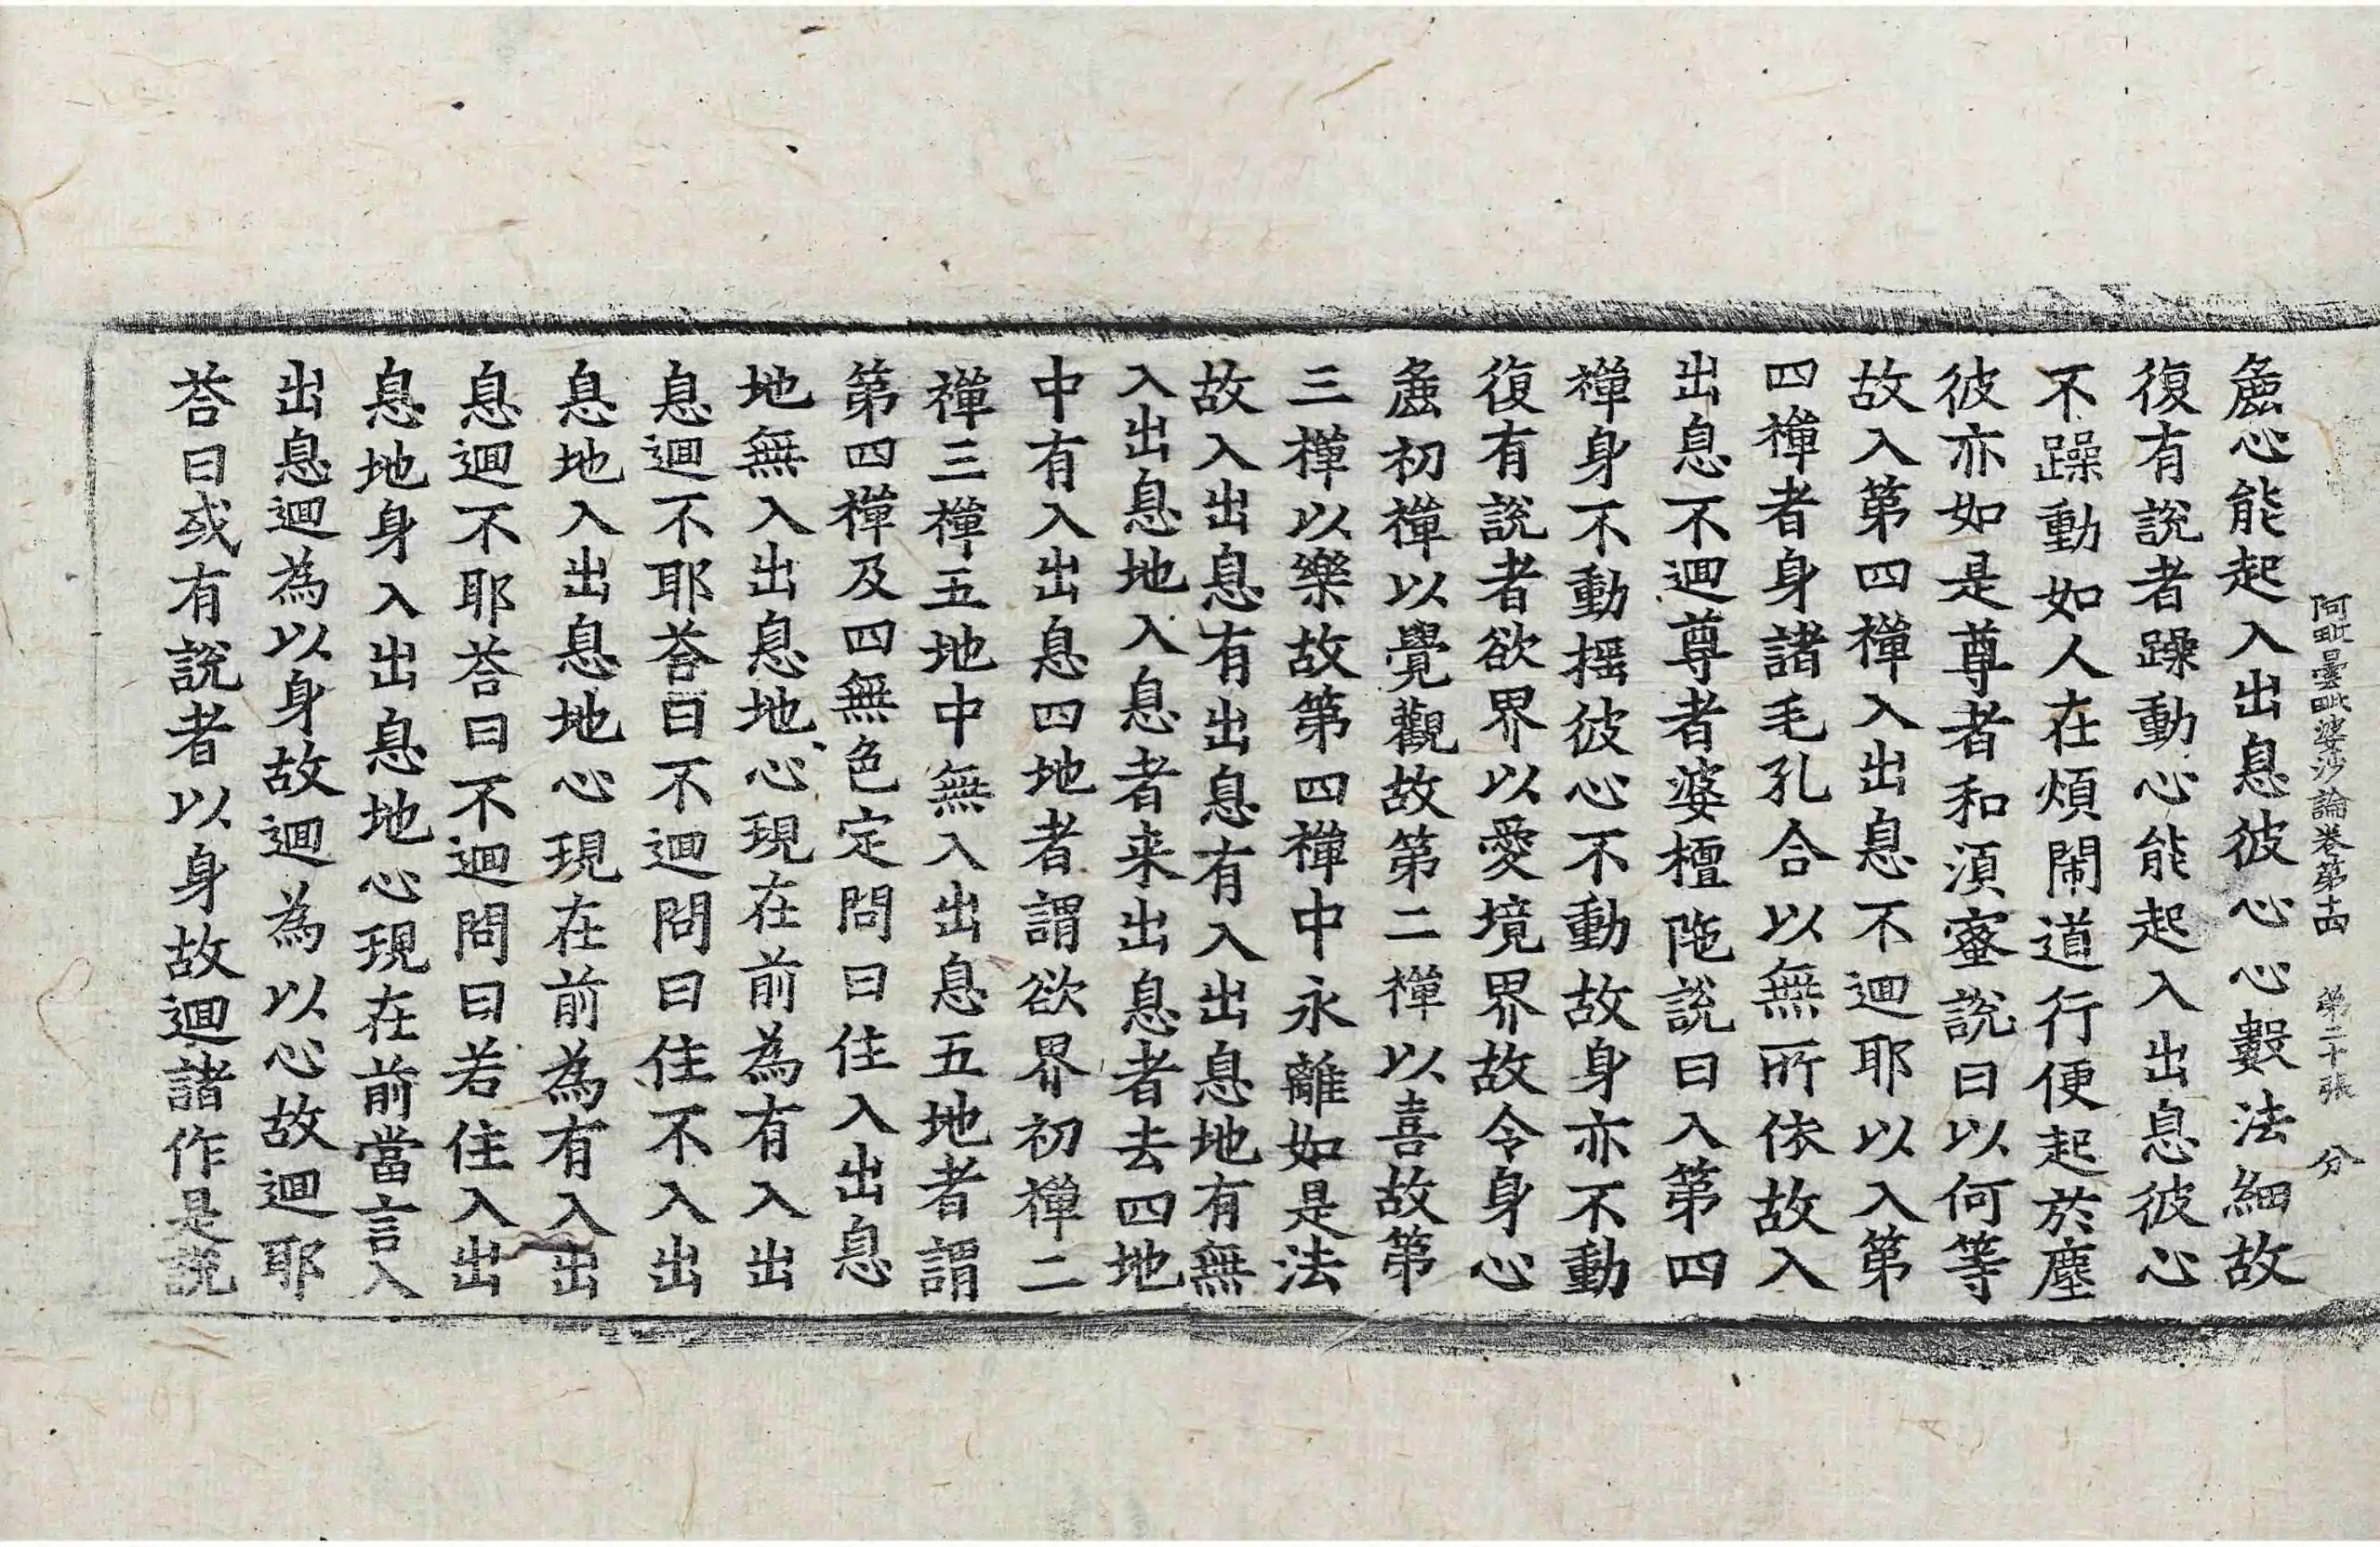 阿毗曇毗婆沙論卷第十四 第二十張 分
麁心能起入出息彼心心數法細故
復有說者躁動心能起入出息彼心
不躁動如人在煩鬧道行便起於塵
彼亦如是尊者和須蜜說曰以何等
故入第四禪入出息不迴耶以入第
四禪者身諸毛孔合以無所依故入
出息不迴尊者婆檀陁說曰入第四
禪身不動揺彼心不動故身亦不動
復有說者欲界以愛境界故令身心
麁初禪以覺觀故第二禪以喜故第
三禪以樂故第四禪中永離如是法
故入出息有出息有入出息地有無
入出息地入息者来出息者去四地
中有入出息四地者謂欲界初禪二
禪三禪五地中無入出息五地者謂
第四禪及四無色定問曰住入出息
地無入出息地心現在前為有入出
息迴不耶荅曰不迴問曰住不入出
息地入出息地心現在前為有入出
息迴不耶荅曰不迴問曰若住入出
息地身入出息地心現在前當言入
出息迴為以身故迴為以心故迴耶
荅曰或有說者以身故迴諸作是說